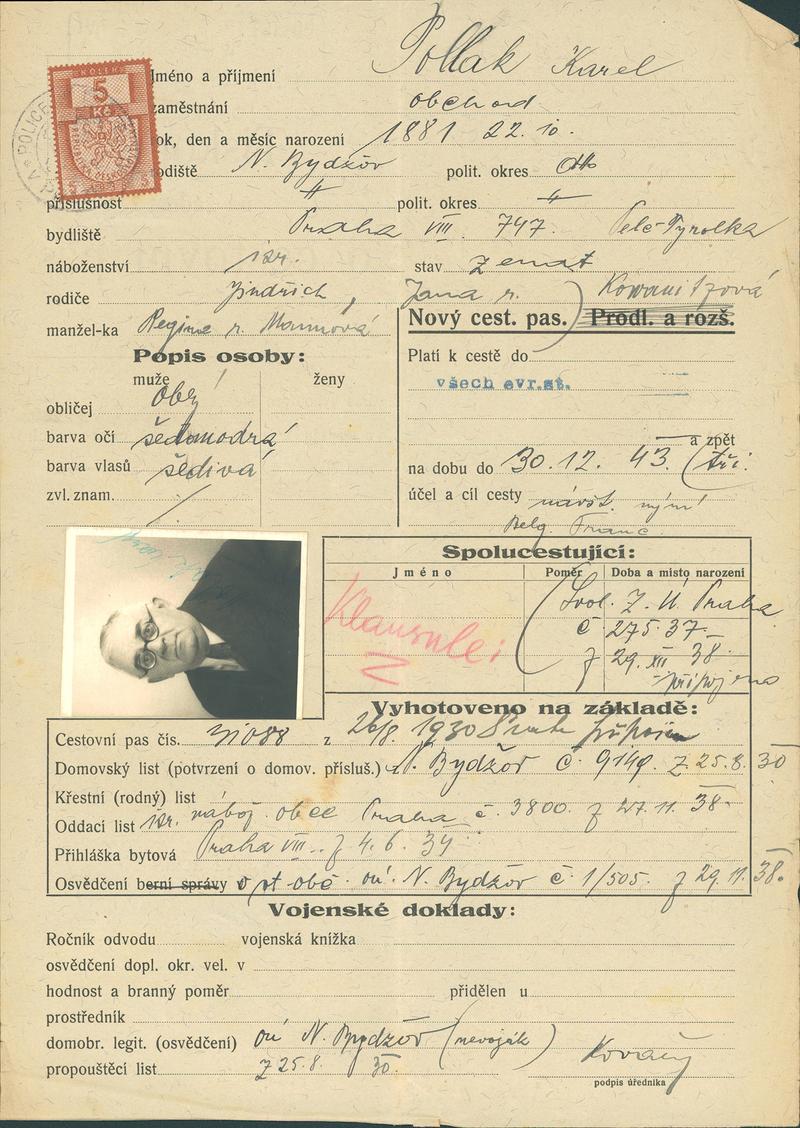 Jméno a příjmení Pollak Karel
zaměstnání obchod
rok, den a měsíc narození 1881 22. 10.
rodiště N. Bydžov polit. okres dtto
příslušnost " polit. okres "
bydliště Praha VIII. 747. Pelc-Tyrolka
náboženství izr. stav ženat
rodiče Jindřich, Jana r. Kowanitzová
manžel-ka Regine r. Mannová
Nový cest. pas. Prodl. a rozš.
Popis osoby:
Platí k cestě do
muže ženy
všech evr. st.
obličej obly
barva očí šedomodrá
a zpět
barva vlasů šedivá
na dobu do 30. 12. 43. (tři.
zvl. znam. /
účel a cíl cesty návšt.
Belg. Franc.
Spolucestující:
Jméno Poměr Doba a místo narození
Praha
č 275.37.
z 29. XII 38.
připojeno
Klausule:
Vyhotoveno na základě:
Cestovní pas čís. z 26/8. 1930
Domovský list (potvrzení o domov. přísluš.) N. Bydžov č. 9149. z 25. 8. 30
Křestní (rodný) list
Oddací list izr. nábož. obce Praha č. 3800. z 27. 11. 38.
Přihláška bytová Praha VIII. z 4. 6. 34
Osvědčení berní správy o st. obč. ou. N. Bydžov č. 1/505. z 29. 11. 38.
Vojenské doklady:
Ročník odvodu vojenská knížka
osvědčení dopl. okr. vel. v
hodnost a branný poměr přidělen u
prostředník
domobr. legit. (osvědčení) ou N. Bydžov (nevoják)
propouštěcí list z 25. 8. 30.
Kovařy
podpis úředníka
KOLEK
5
Kč
POLICE